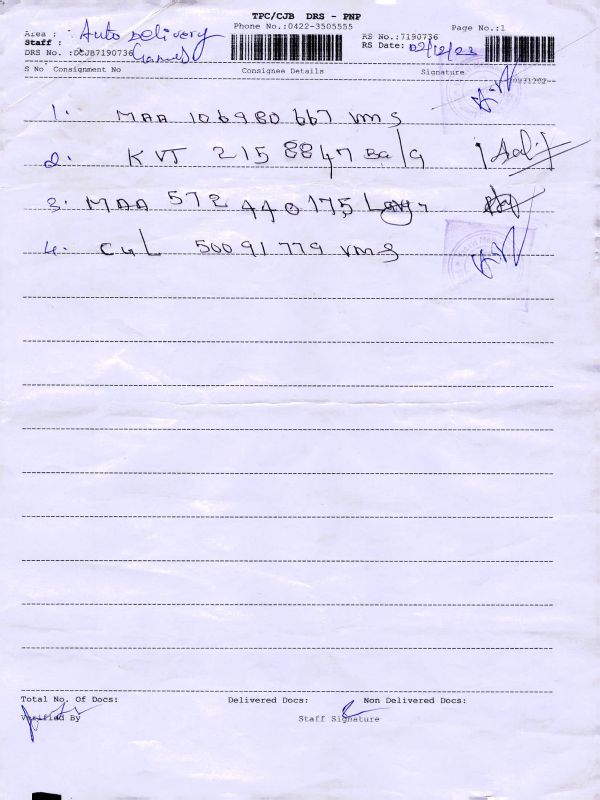 TPC/CJB DRS - PNP
Phone No.:0422-3505555 Page No.:1
Area : Auto Delivery
Staff : Ganesh
DRS No. :DCJB7190736
RS No.:7190736
RS Date: 02/12/23
S No Consignment No Consignee Details Signature
1. MAA 106980667 VMS
2. KVT 2158847
3. MAA 572440175
4. CUL 50091779 VMS
Total No. Of Docs: Delivered Docs: Non Delivered Docs:
Verified By Staff Signature